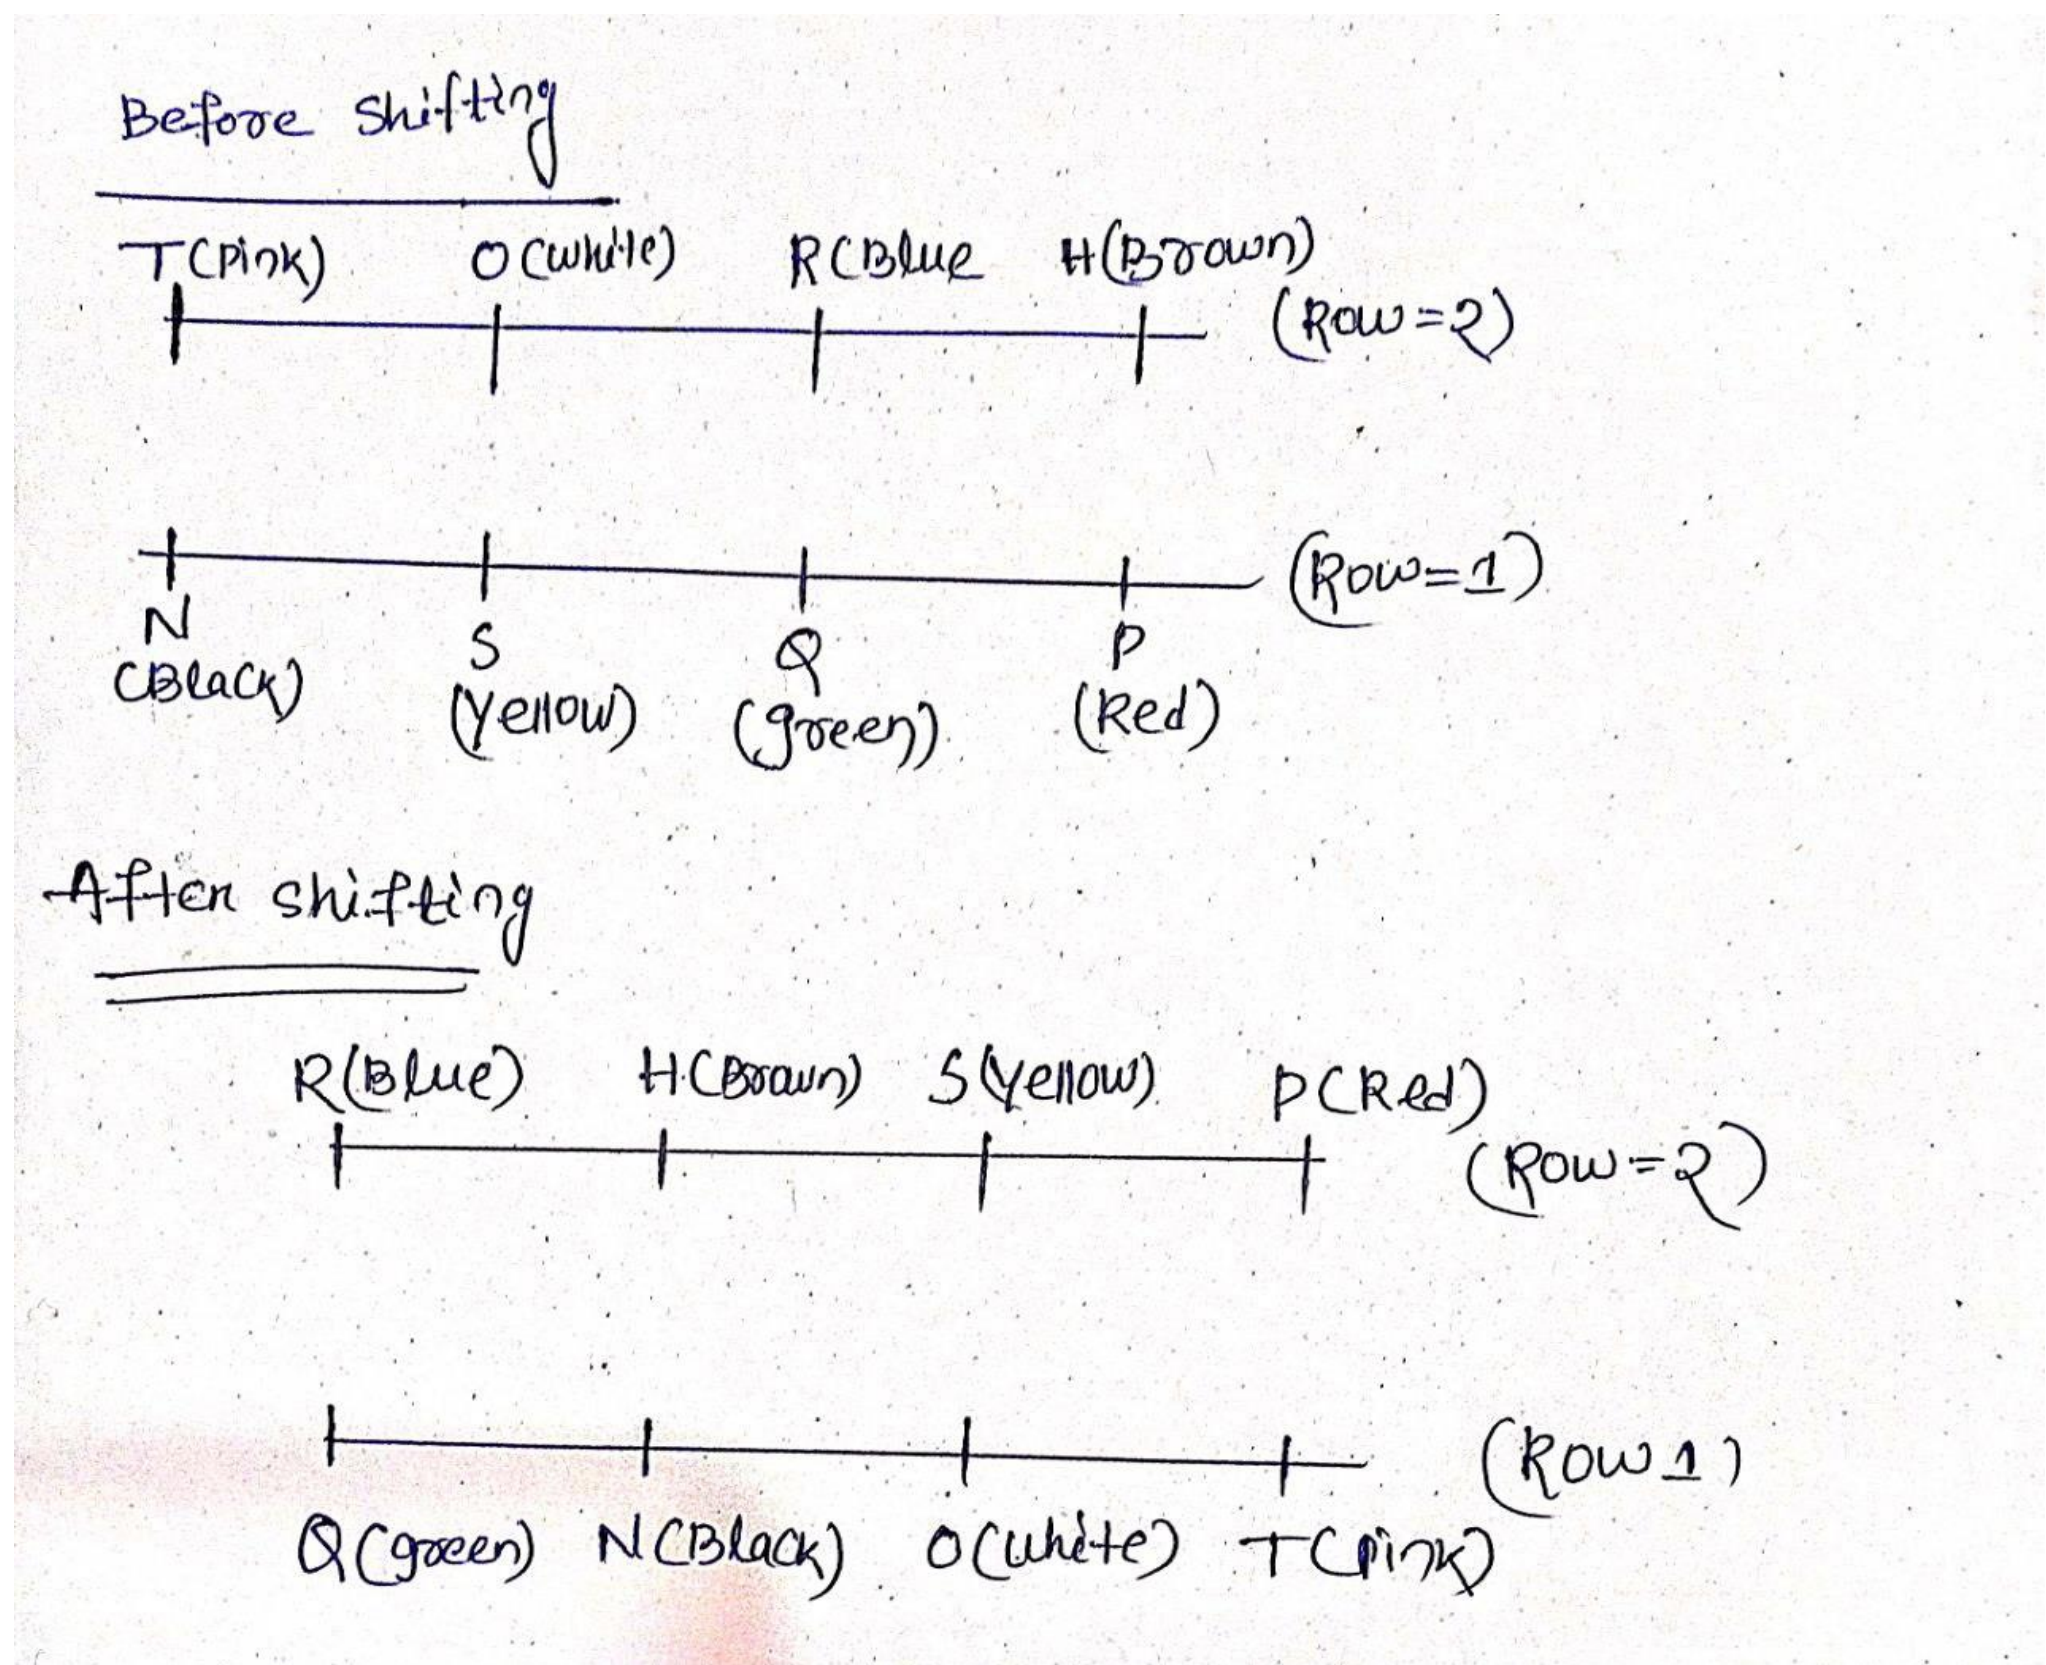 Before Shifting
T(Pink) O(White) R(Blue H(Brown)
(Row=2)
(Row=1)
N S Q P
(Black) (Yellow) (green) (Red)
After shifting
R(Blue) H(Brown) S(Yellow) P(Red)
(Row=2)
(Row 1)
Q(green) N(Black) O(White) T(Pink)